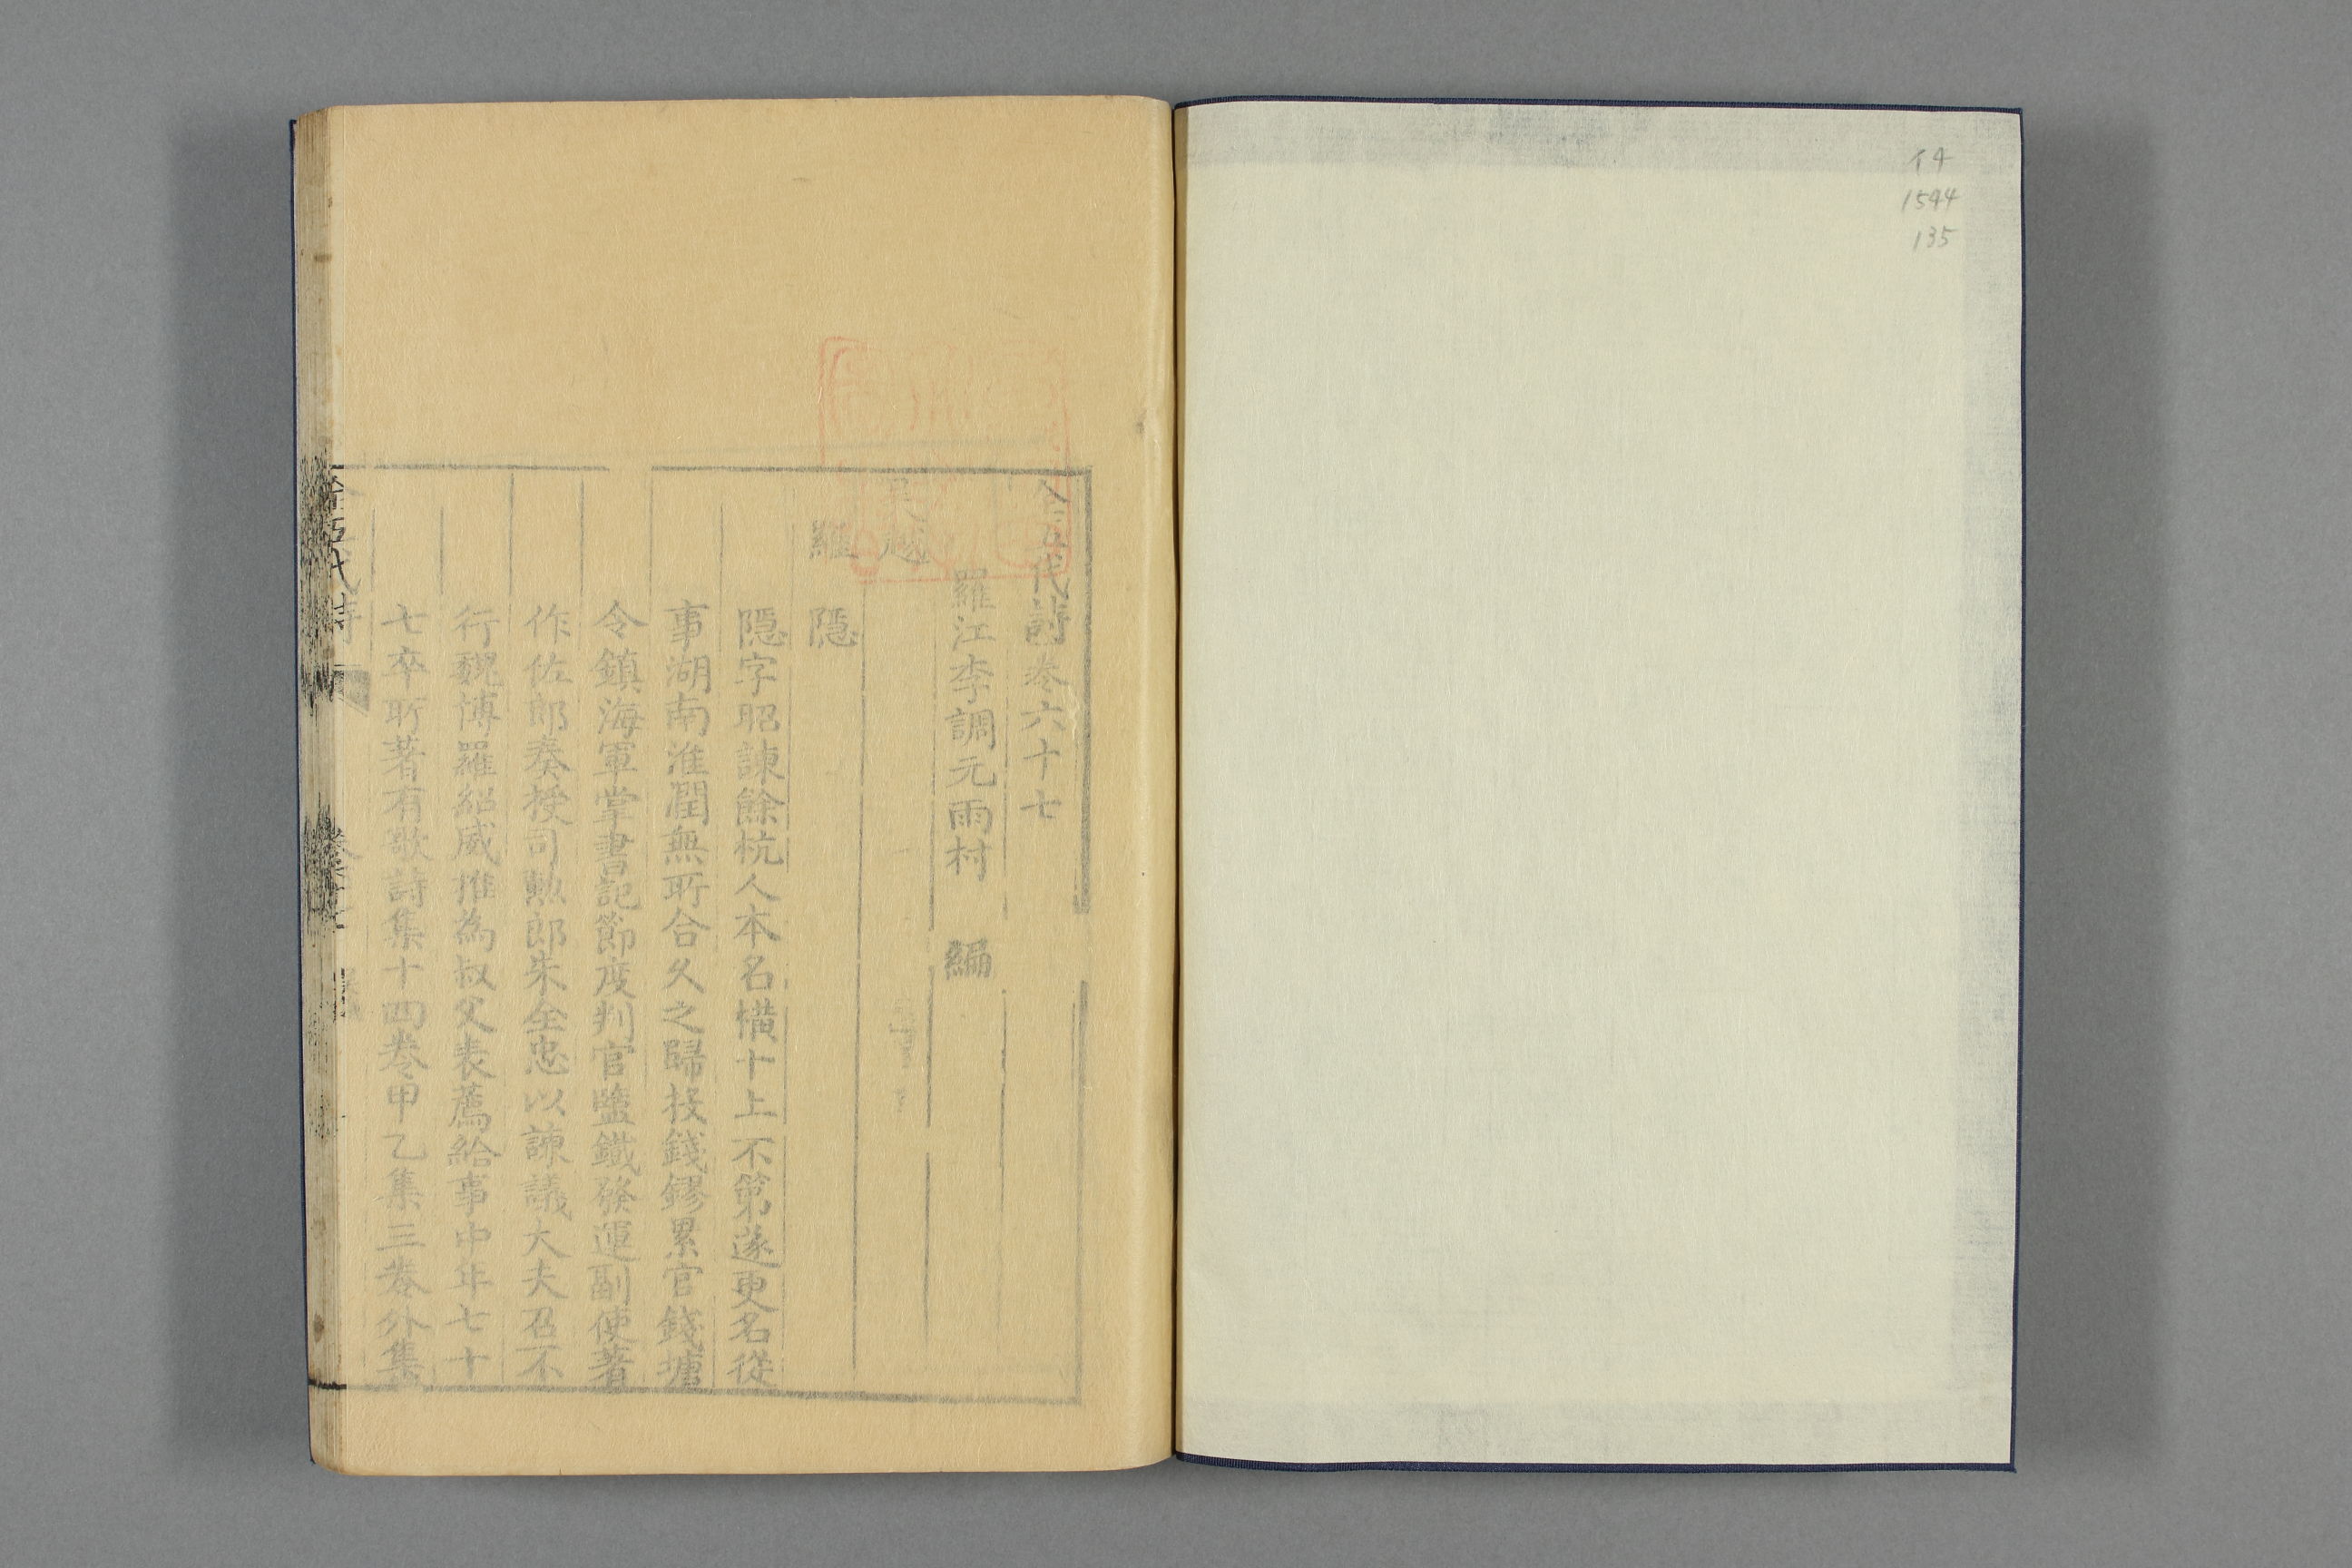 T4
1544
135
全五代詩卷六十七
羅江李調元雨村 編
吳越
羅 隱
隱字昭諫餘杭人本名橫十上不第遂更名從
事湖南淮潤無所合久之歸投錢鏐累官錢塘
令鎮海軍掌書記節度判官鹽鐵發運副使著
作佐郎奏授司勲郎朱全忠以諫議大夫召不
行魏博羅紹威推為叔父表薦給事中年七十
七卒所著有歌詩集十四卷甲乙集三卷外集
全五代詩